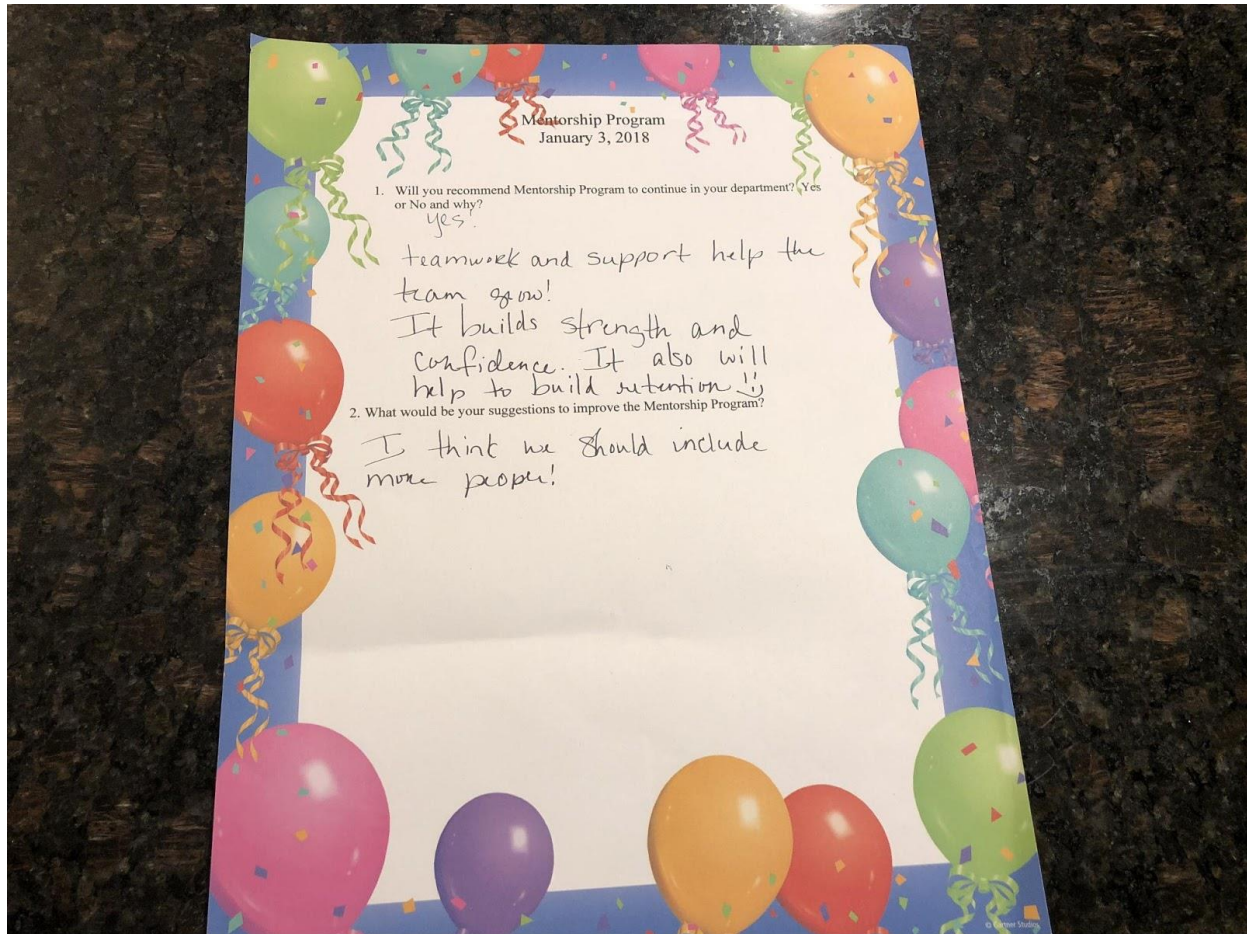 Mentorship Program
January 3, 2018
1. Will you recommend Mentorship Program to continue in your department? Yes
or No and why?
yes!
teamwork and support help the
team grow!
It builds strength and
confidence. It also will
help to build retention
2. What would be your suggestions to improve the Mentorship Program?
I think we should include
more people!
© Gartner Studios